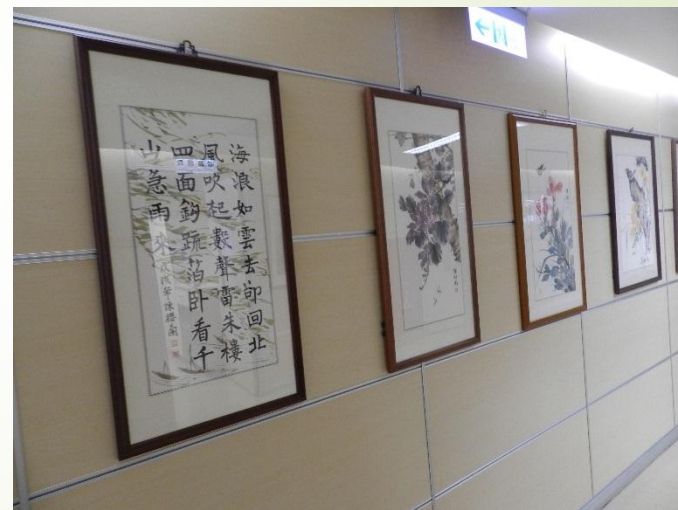 海浪如雲去卻回北
風吹起數聲雷朱樓
四面鈎疏箔卧看千
山急雨來